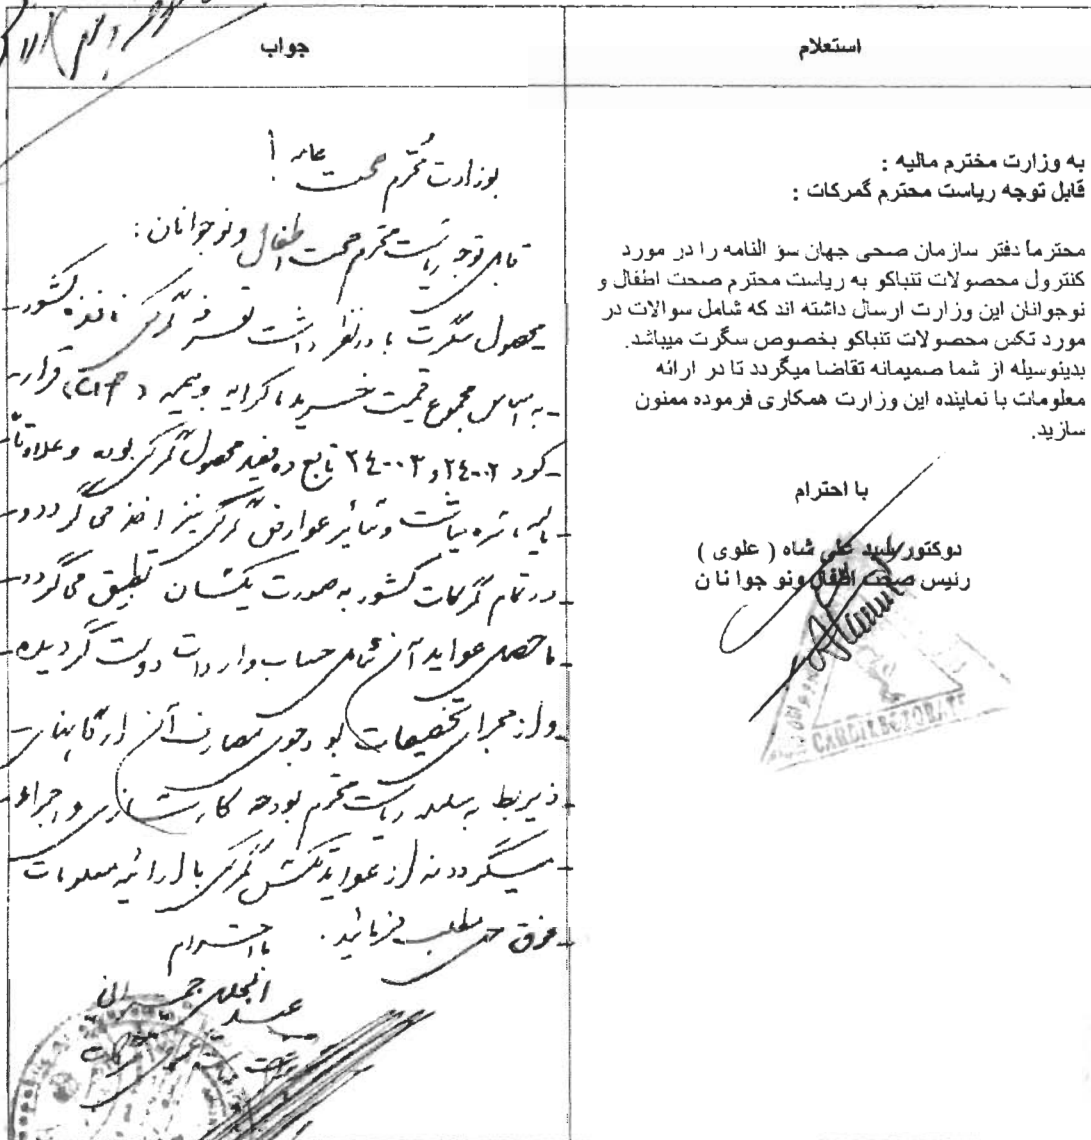 استعلام
به وزارت مخترم مالیه :
قابل توجه ریاست محترم گمرکات :
محترماً دفتر سازمان صحی جهان سؤ النامه را در مورد
کنترول محصولات تنباکو به ریاست محترم صحت اطفال و
نوجوانان این وزارت ارسال داشته اند که شامل سوالات در
مورد تکس محصولات تنباکو بخصوص سگرت میباشد.
بدینوسیله از شما صمیمانه تقاضا میگردد تا در ارائه
معلومات با نماینده این وزارت همکاری فرموده ممنون
سازید.
با احترام
دوکتور سید علی شاه ( علوی )
رئیس صحت اطفال ونو جوا نا ن
جواب
بوزارت محترم صحت عامه !
قابل توجه ریاست محترم صحت اطفال و نوجوانان :
محصول سگرت با درنظر داشت تعرفه گمرکی نافذه کشور
به اساس مجموع قیمت خرید با کرایه وبیمه ( CIF ) قرار
کود ۲۴۰۲ و ۲۴۰۳ تابع ده فیصد محصول گمرکی بوده و علاوتاً
مالیه و سایر عوارض گمرکی نیز اخذ می گردد و
در تمام گمرکات کشور به صورت یکسان تطبیق می گردد
ماحصل عواید آن شامل حساب واردات دولت گردیده
و از مجرای تخصیصات بودجوی مصارف آن ارگانهای
ذیربط به سلسله ریاست محترم بودجه کارسازی و اجراء
میگردد نه از عواید تکس گمرکی با ارائیه معلومات
فوق حل مطلب فرمائید .
با احترام